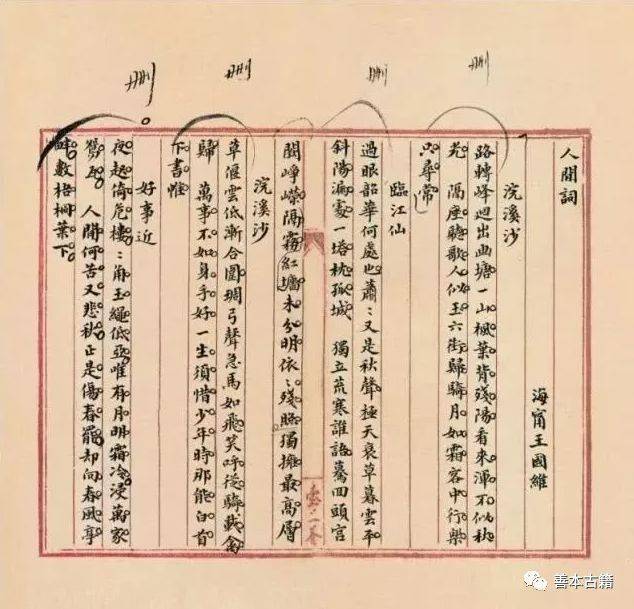 删 删 删 删
人間詞
海甯王國維
浣溪沙
路轉峰迴出曲塘一山楓葉背殘陽看來渾不似秋
光 隔座聽歌人似玉六街歸騎月如霜客中行樂
只尋常
臨江仙
過眼韶華何處也蕭〻又是秋聲極天衰草暮雲平
斜陽漏處一塔枕孤城 獨立荒寒誰語驀回頭宮
闕崢嶸隔霧紅墻未分明依〻殘照獨擁最高層
浣溪沙
草偃雲低漸合圍琱弓聲急馬如飛笑呼從騎載禽
歸 萬事不如身手好一生須惜少年時那能白首
下書帷
好事近
夜起倚危樓〻角玉繩低亞唯有月明霜冷浸萬家
鴛瓦 人間何苦又悲秋正是傷春罷却向春風亭
畔數梧桐葉下
善本古籍